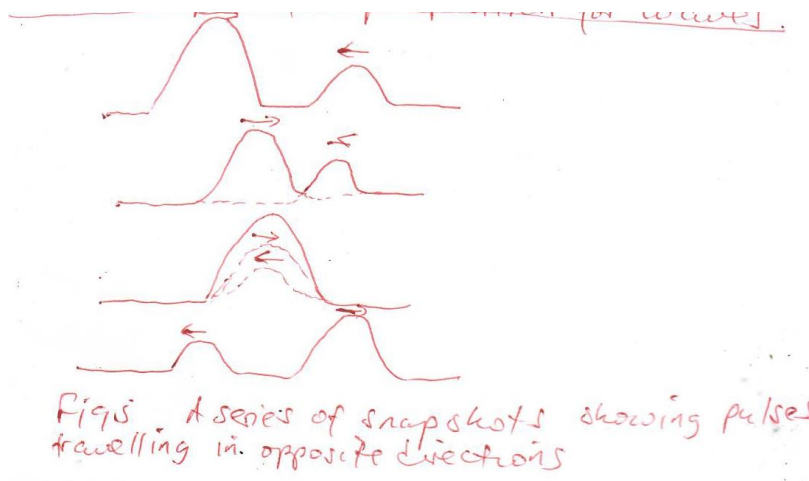 for waves.
Figs A series of snapshots showing pulses
travelling in opposite directions